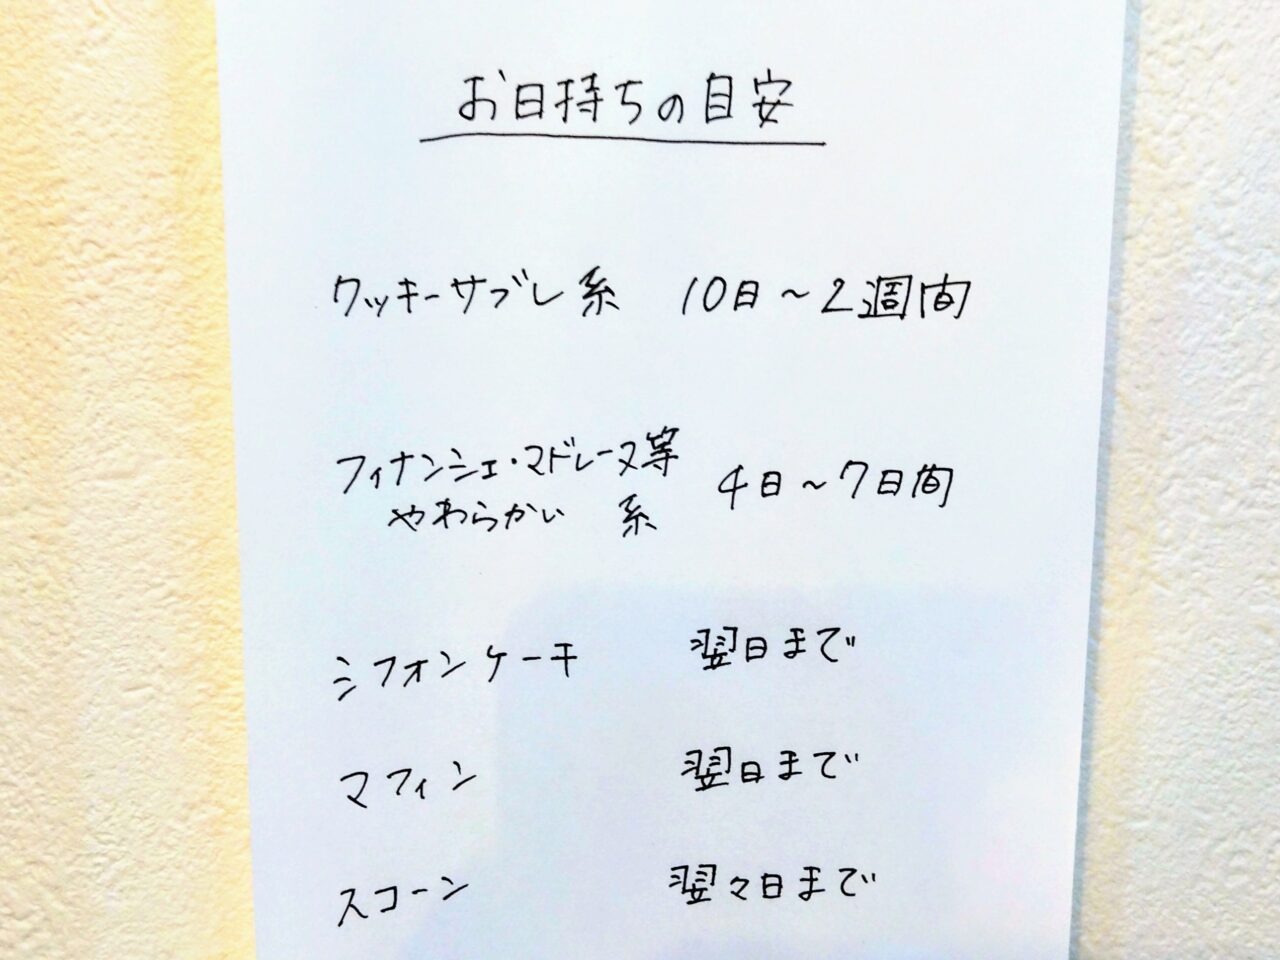 お日持ちの目安
クッキーサブレ系 10日～2週間
フィナンシェ・マドレーヌ等
やわらかい 系 4日～7日間
シフォンケーキ 翌日まで
マフィン 翌日まで
スコーン 翌々日まで